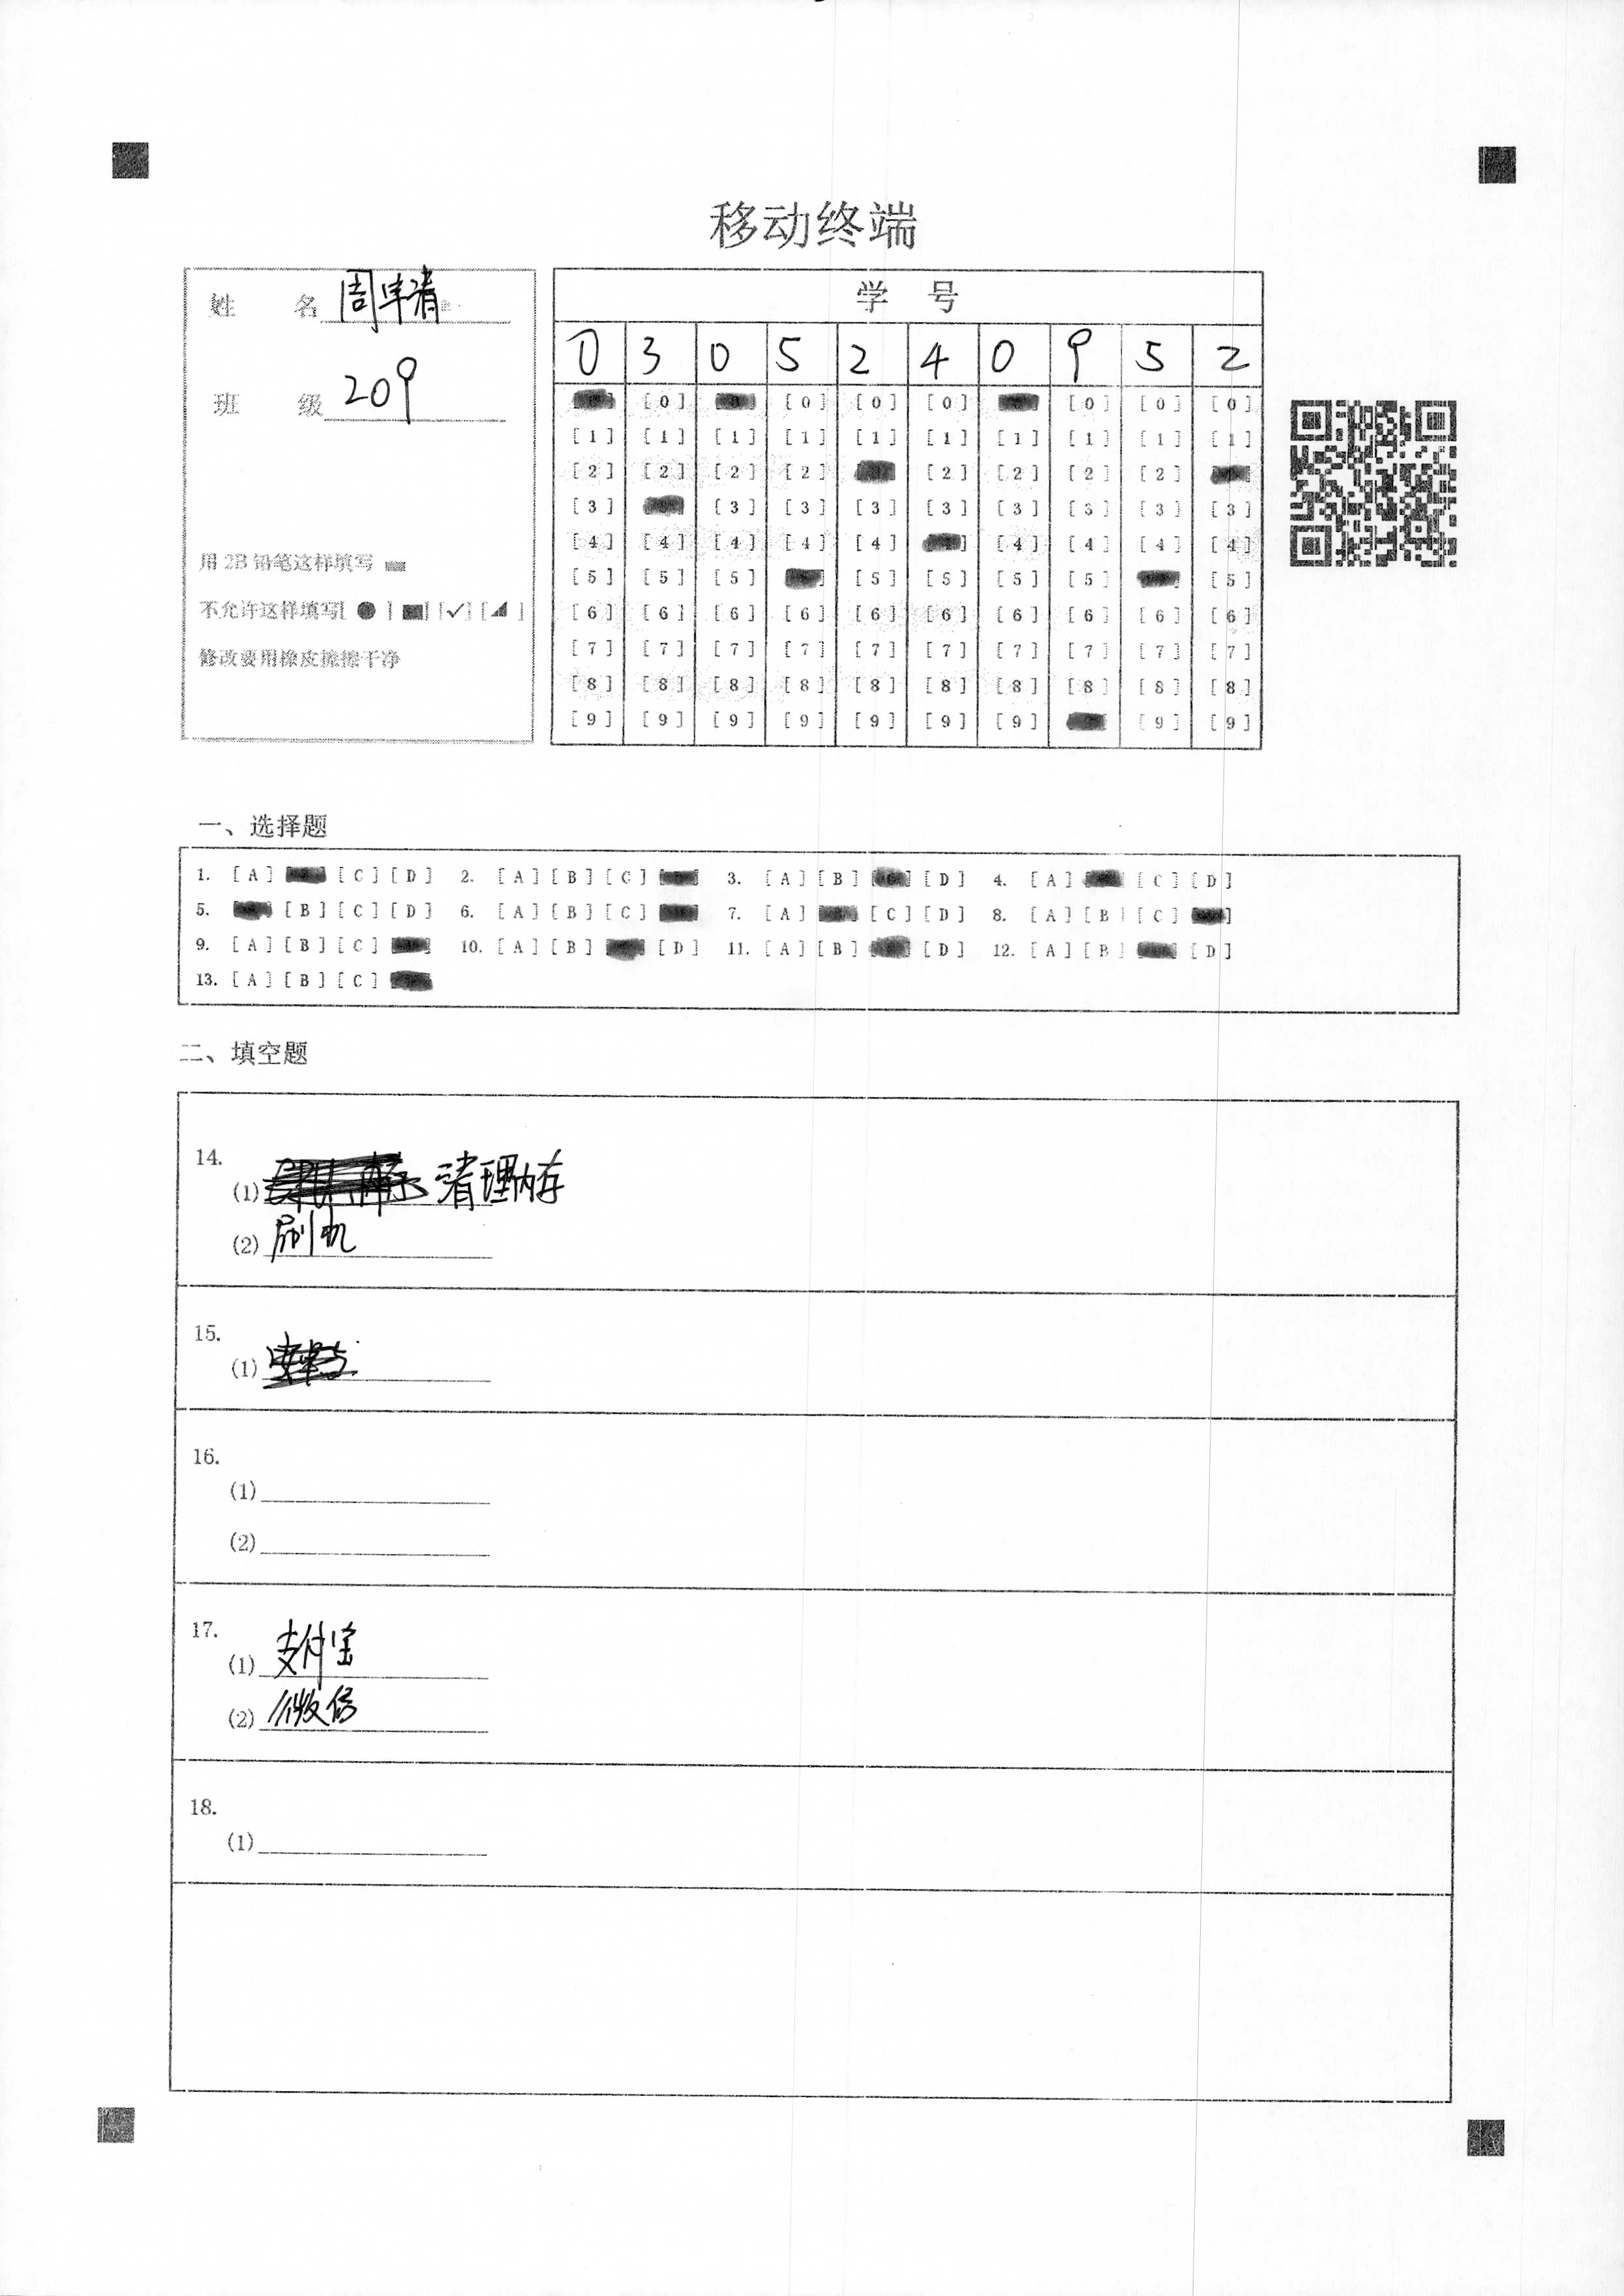 移动终端
姓 名 周聿清
班 级 209
用 2B 铅笔这样填写
不允许这样填写[ ● ] [■] [✓] [◢ ]
修改要用橡皮擦擦干净
学 号
0 3 0 5 2 4 0 9 5 2
[0] [0] [0] [0] [0] [0] [0]
[1] [1] [1] [1] [1] [1] [1] [1] [1] [1]
[2] [2] [2] [2] [2] [2] [2] [2]
[3] [3] [3] [3] [3] [3] [3] [3] [3]
[4] [4] [4] [4] [4] [4] [4] [4] [4]
[5] [5] [5] [5] [5] [5] [5] [5]
[6] [6] [6] [6] [6] [6] [6] [6] [6] [6]
[7] [7] [7] [7] [7] [7] [7] [7] [7] [7]
[8] [8] [8] [8] [8] [8] [8] [8] [8] [8]
[9] [9] [9] [9] [9] [9] [9] [9] [9]
一、选择题
1. [A] [C] [D] 2. [A] [B] [C] 3. [A] [B] [D] 4. [A] [C] [D]
5. [B] [C] [D] 6. [A] [B] [C] 7. [A] [C] [D] 8. [A] [B] [C]
9. [A] [B] [C] 10. [A] [B] [D] 11. [A] [B] [D] 12. [A] [B] [D]
13. [A] [B] [C]
二、填空题
14.
(1) 清理内存
(2) 刷机
15.
(1)
16.
(1)
(2)
17.
(1) 支付宝
(2) 微信
18.
(1)